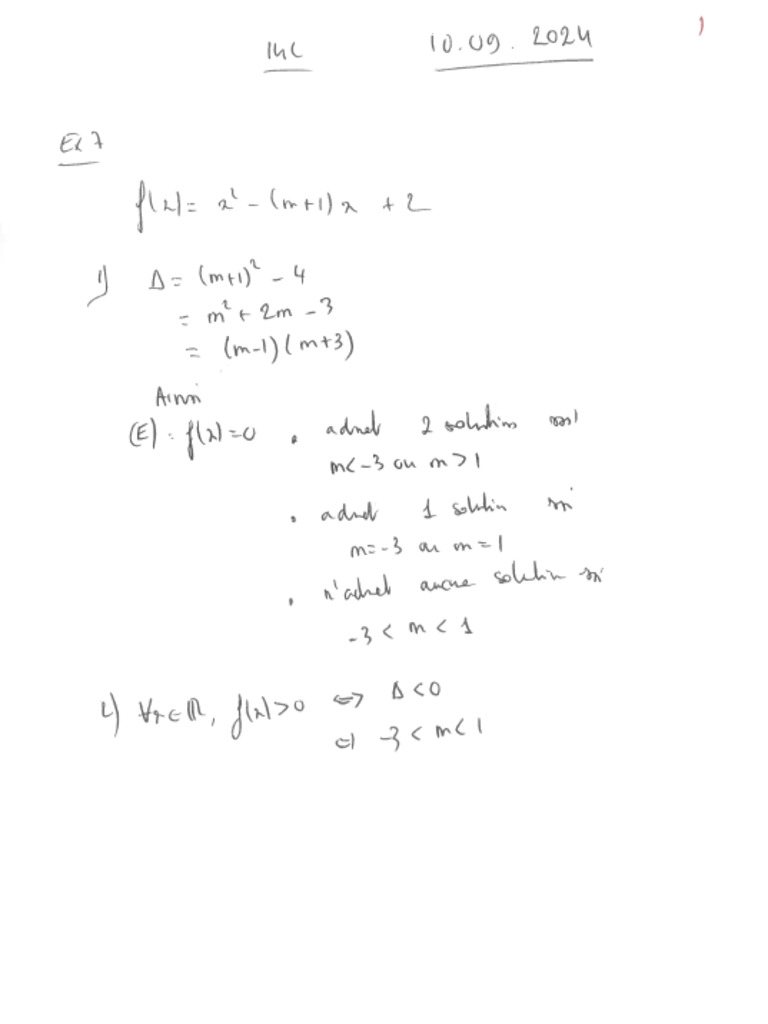 1MC 10.09.2024
Ex 7
f(x) = x² - (m+1)x + 2
1) Δ = (m+1)² - 4
= m² + 2m - 3
= (m-1)(m+3)
Ainsi
(E) : f(x)=0 • admet 2 solutions ssi
m<-3 ou m>1
• admet 1 solution ssi
m=-3 ou m=1
• n'admet aucune solution ssi
-3 < m < 1
2) ∀x∈ℝ, f(x)>0 ⇔ Δ<0
⇔ -3 < m < 1